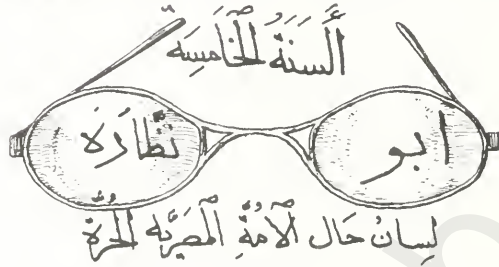 أَلسَنَةُ الخَامِسَه
ابو نَظَارَه
لِسانُ حَال الأُمَّةِ المَصرِيَّه الحُرَّة